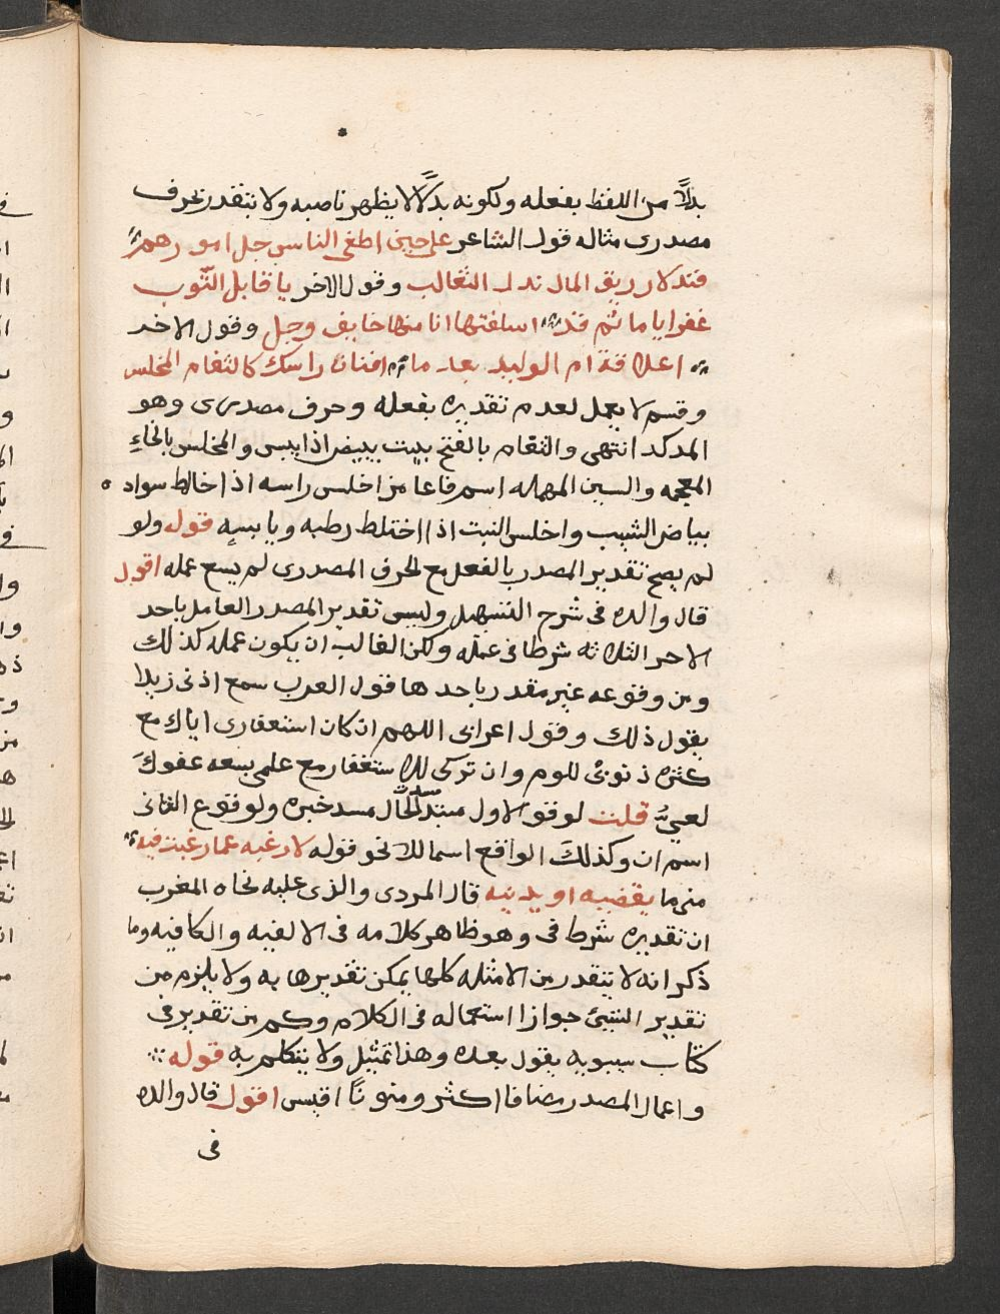 بدلاً من اللفظ بفعله ولكونه بدلاً لا يظهر ناصبه ولا يتقدر بحرف
مصدرى مثاله قول الشاعر على حين الهى الناس جل امورهم
فندلا زريق المال ندل الثعالب وقول الاخر يا قابل التوب
غفرايا ماثم قد اسلفتها انا منها خايف وجل وقول الاخر
اعلاقة ام الوليد بعد ما افنان راسك كالثغام المخلس
وقسم لا يعمل لعدم تقديره بفعله وحرف مصدرى وهو
المدكد انتهى والثغام بالفتح بيت يبيض اذا يبس والمخلس بالخاء
المعجمه والسين المهمله اسم فاعا من اخلس راسه اذا خالط سواد
بياض الشيب واخلس النبت اذا اختلط رطبه ويابسه قول ولو
لم يصح تقدير المصدر بالفعل مع الحرف المصدرى لم يسع عمله اقول
قال والده فى شرح التسهيل وليس تقدير المصدر العامل باحد
الاحر الثلاثه شرطا فى عمله ولكن الغالب ان يكون عمله كذلك
ومن وقوعه غير مقدر باحدها قول العرب سمع اذنى زيدا
يقول ذلك وقول اعرابى اللهم ان كان استغفارى اياك مع
كثره ذنوبى للوم وان تركى للاستغفار مع علمى بسعه عفوك
لعىٌّ قلت لوقو الاول مبتدا الحال سد مسد خبره ولوقوع الثانى
اسم ان وكذلك الواقع اسما للا نحو قوله لا رغبه عما رغبت فيه
منى ما يقضيه او يدنيه قال المردى والذى عليه نحاه المغرب
ان تقديره شرط فى وهو ظاهر كلامه فى الالفيه والكافيه وما
ذكر انه لا يتقدر من الامثله كلها يمكن تقديرها به ولا يلزم من
تقدير الشىء جواز استعماله فى الكلام وكم من تقدير فى
كتاب سيبويه يقول بعده وهذا تمثيل ولا يتكلم به قوله
واعمال المصدر مضافا اكثر ومنونًا اقيس اقول قال والده
فى